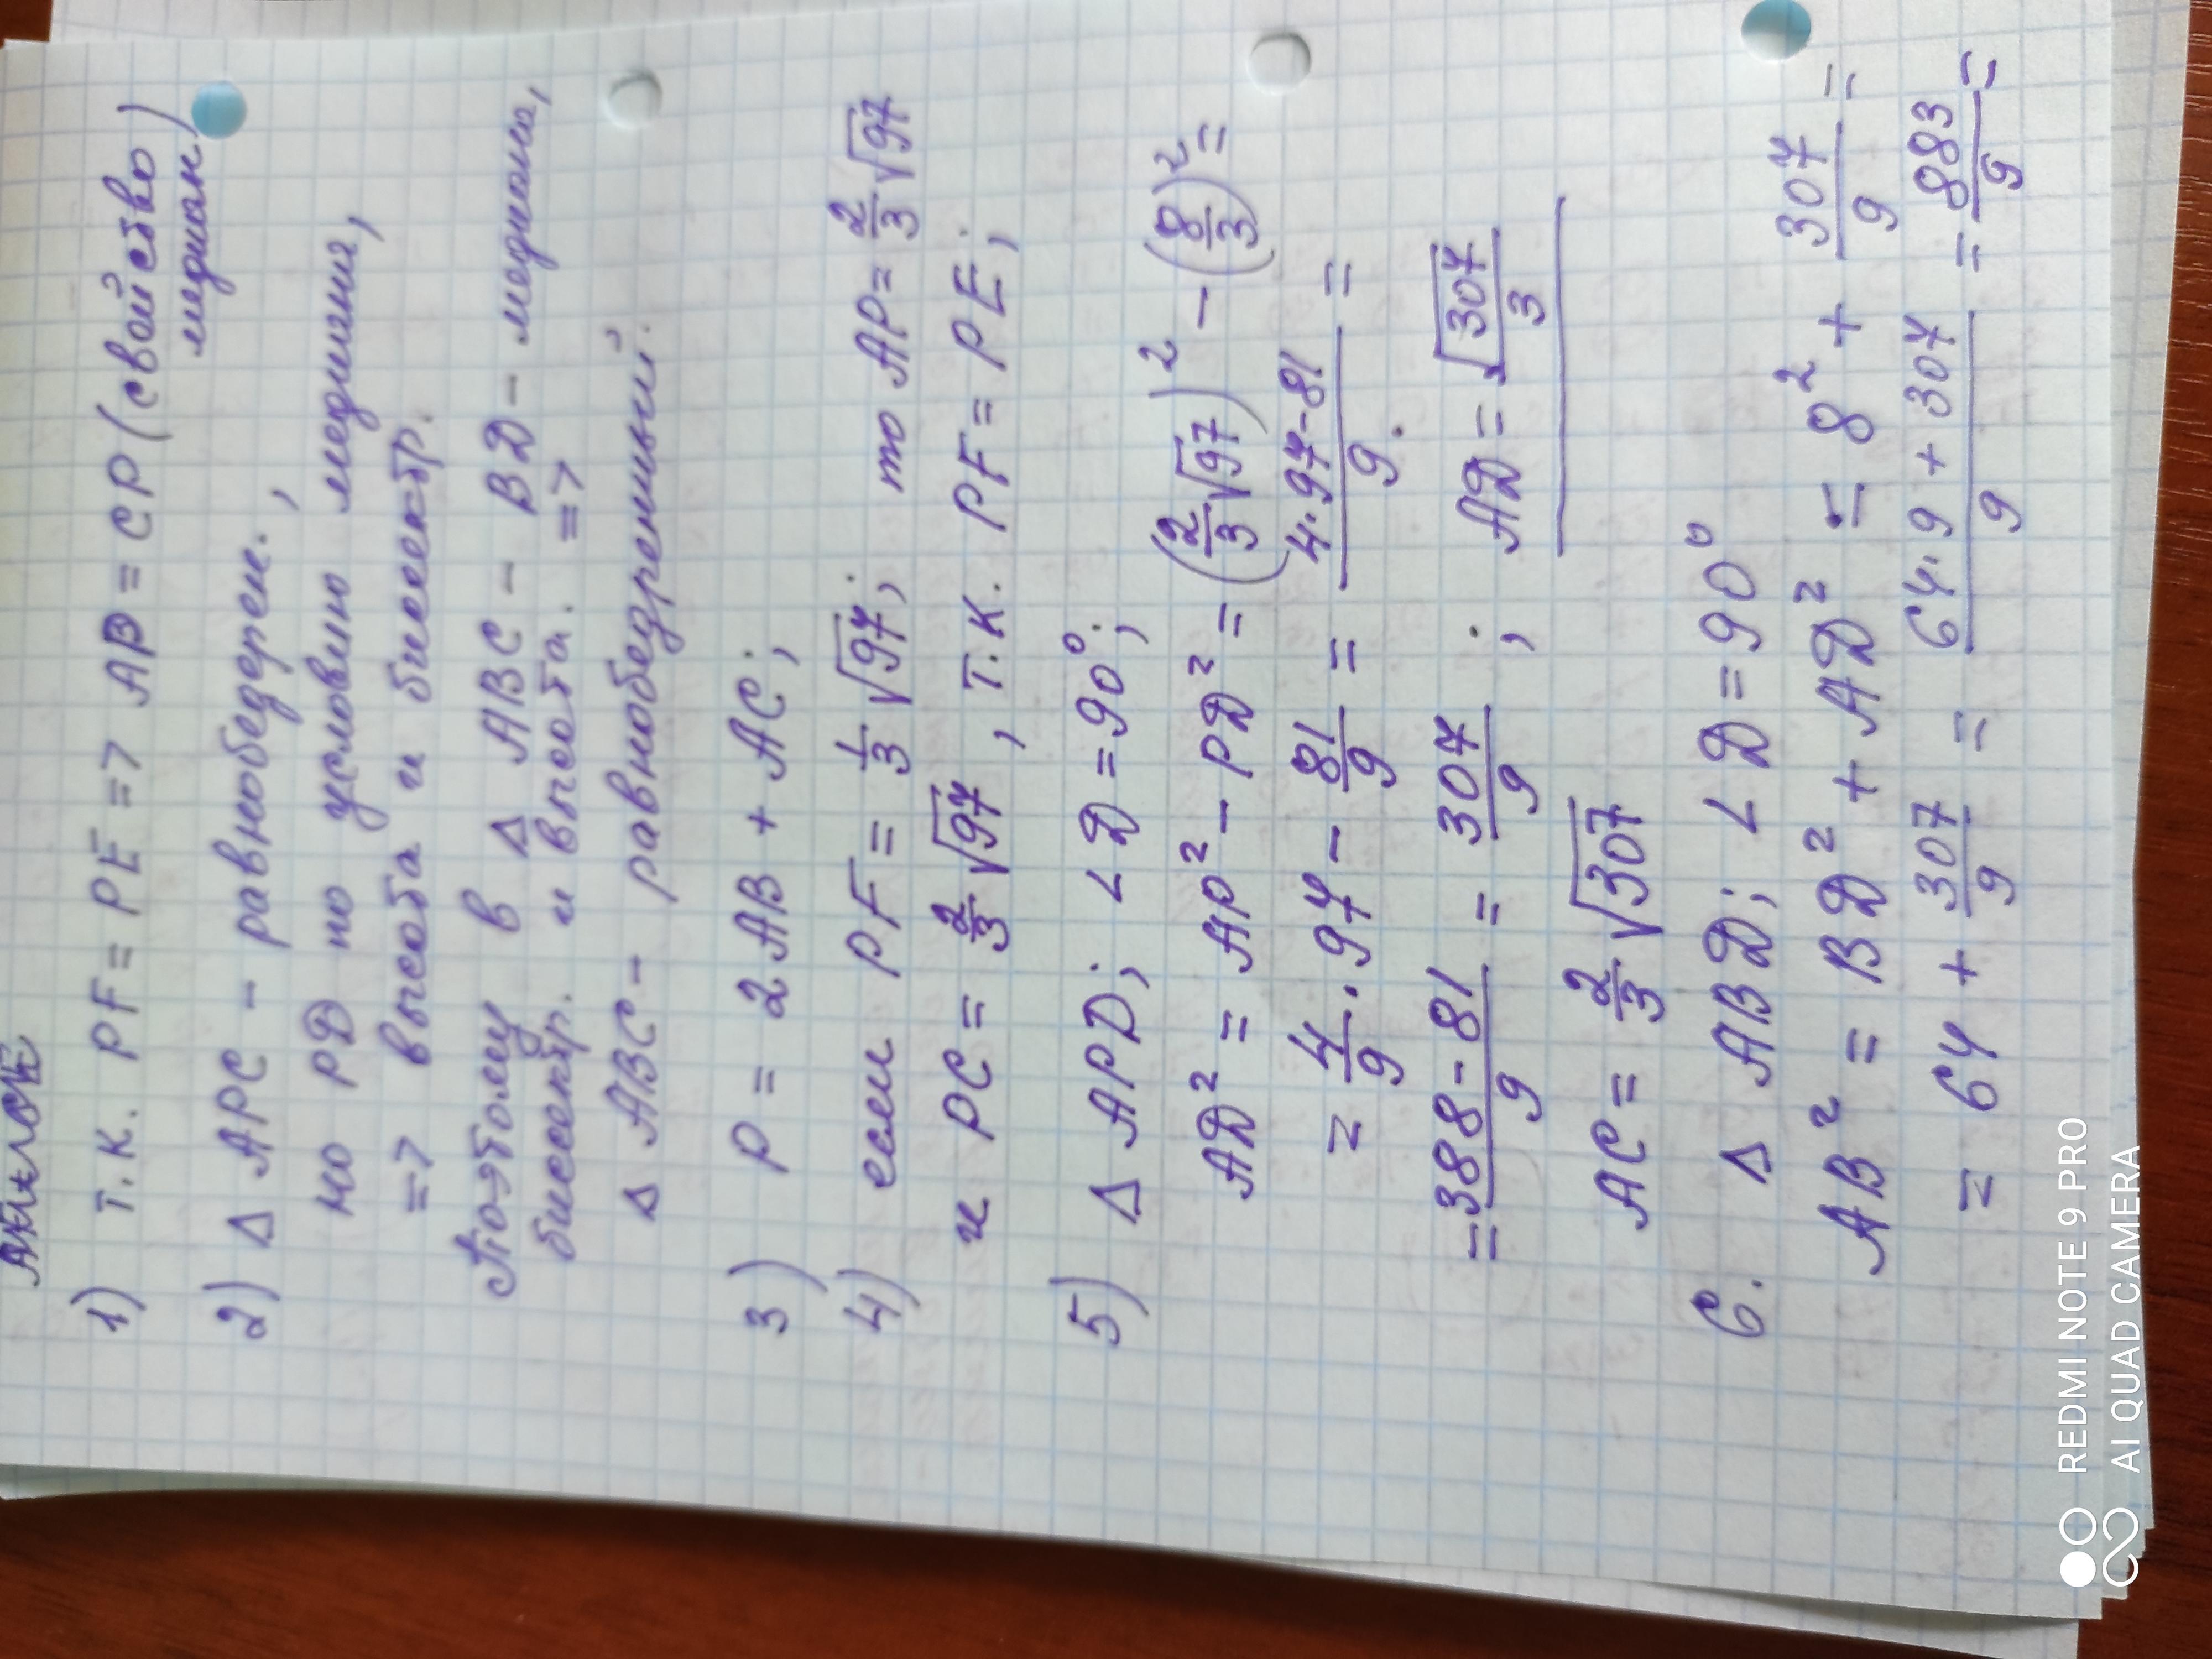 1) т.к. PF = PE => AP = CP (свойство
медиан)
2) Δ APC - равнобедрен.,
но PD по условию медиана,
=> высота и биссектр.
Поэтому в Δ ABC - BD - медиана,
биссектр. и высота. =>
Δ ABC - равнобедренный.
3) P = 2AB + AC;
4) если PF = 1/3 √97; то AP = 2/3 √97
и PC = 2/3 √97, т.к. PF = PE;
5) Δ APD; ∠D = 90°;
AD² = AP² - PD² = (2/3 √97)² - (8/3)² =
= 4/9 · 97 - 81/9 = (4·97-81)/9 =
= (388-81)/9 = 307/9; AD = √307/3
AC = 2/3 √307
6. Δ ABD; ∠D = 90°
AB² = BD² + AD² = 8² + 307/9 =
= 64 + 307/9 = (64·9 + 307)/9 = 883/9 =
REDMI NOTE 9 PRO
AI QUAD CAMERA